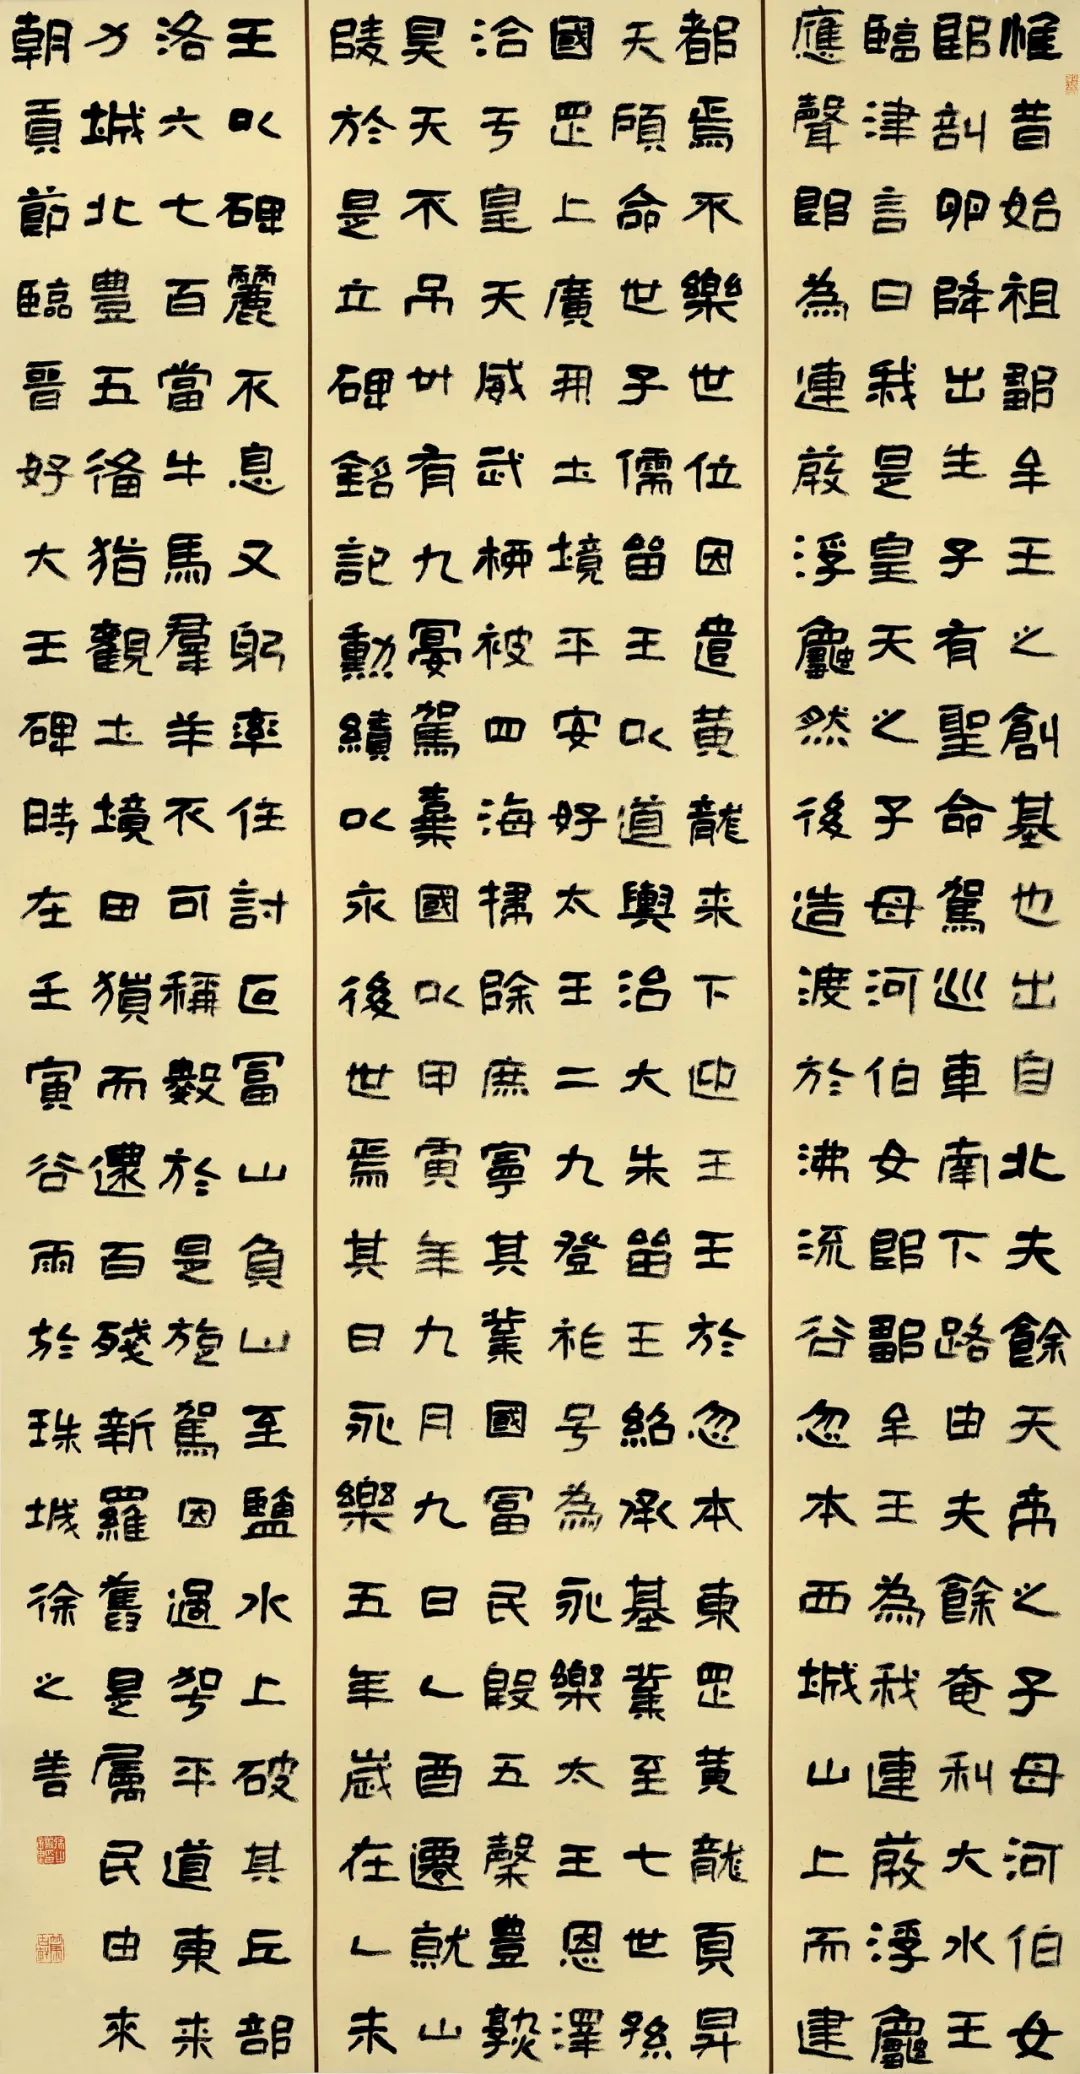 惟昔始祖鄒牟王之創基也出自北夫餘天帝之子母河伯女
郎剖卵降出生子有聖命駕巡車南下路由夫餘奄利大水王
臨津言曰我是皇天之子母河伯女郎鄒牟王為我連葭浮龜
應聲即為連葭浮龜然後造渡於沸流谷忽本西城山上而建
都焉不樂世位因遣黃龍来下迎王王於忽本東罡黃龍頁昇
天顧命世子儒留王以道輿治大朱留王紹承基業至七世孫
國罡上廣開土境平安好太王二九登祚号為永樂太王恩澤
洽于皇天威武柳被四海掃除庶寧其業國富民殷五穀豊熟
昊天不吊卅有九晏駕棄國以甲寅年九月九日乙酉遷就山
陵於是立碑銘記勳績以永後世焉其曰永樂五年歲在乙未
王以碑麗不息又躬率住討叵富山負山至鹽水上破其丘部
洛六七百當牛馬羣羊不可稱數於是旋駕因過平道東来
力城北豊五備猶觀土境田獵而還百殘新羅舊是屬民由來
朝貢節臨晉好大王碑時在壬寅谷雨於珠城徐之善